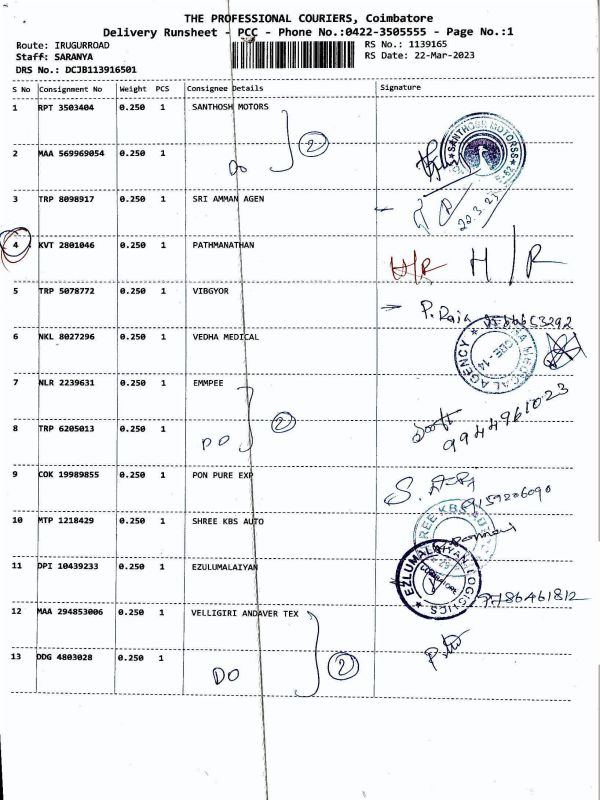 THE PROFESSIONAL COURIERS, Coimbatore
Delivery Runsheet - PCC - Phone No.:0422-3505555 - Page No.:1
Route: IRUGURROAD RS No.: 1139165
Staff: SARANYA RS Date: 22-Mar-2023
DRS No.: DCJB113916501
S No Consignment No Weight PCS Consignee Details Signature
1 RPT 3503404 0.250 1 SANTHOSH MOTORS
2 MAA 569969054 0.250 1 Do 2 SANTHOSH MOTORSS
3 TRP 8098917 0.250 1 SRI AMMAN AGEN 22.3.23
4 KVT 2801046 0.250 1 PATHMANATHAN H/R H/R
5 TRP 5078772 0.250 1 VIBGYOR P. Raja
6 NKL 8027296 0.250 1 VEDHA MEDICAL MEDICAL AGENCY
7 NLR 2239631 0.250 1 EMMPEE
8 TRP 6205013 0.250 1 DO 2 9944961023
9 COK 19989855 0.250 1 PON PURE EXP 9159206090
10 MTP 1218429 0.250 1 SHREE KBS AUTO SHREE KBS AUTO
11 DPI 10439233 0.250 1 EZULUMALAIYAN EZLUMALAIYAN LOGICHICS
12 MAA 294853006 0.250 1 VELLIGIRI ANDAVER TEX
13 DDG 4803028 0.250 1 DO 2